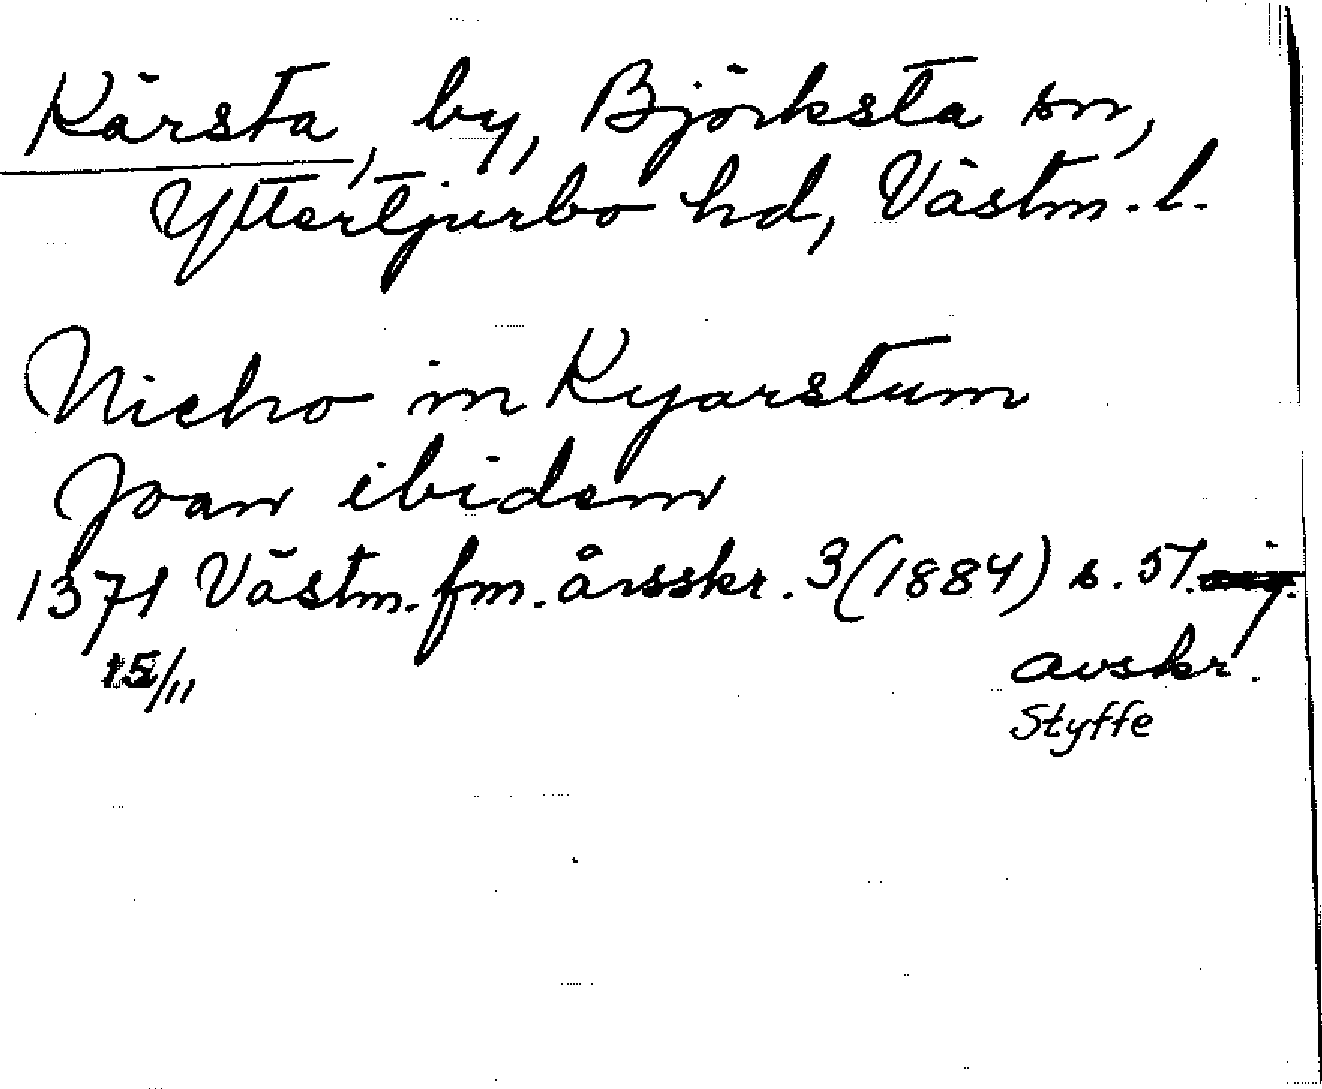 Kärsta, by, Björksta sn,
Yttertjurbo hd, Västm. l.
Nicho in Kyarstum
Joan ibidem
1371 Västm. fm. årsskr. 3 (1884) s. 57.
15/11 avskr.
Styffe